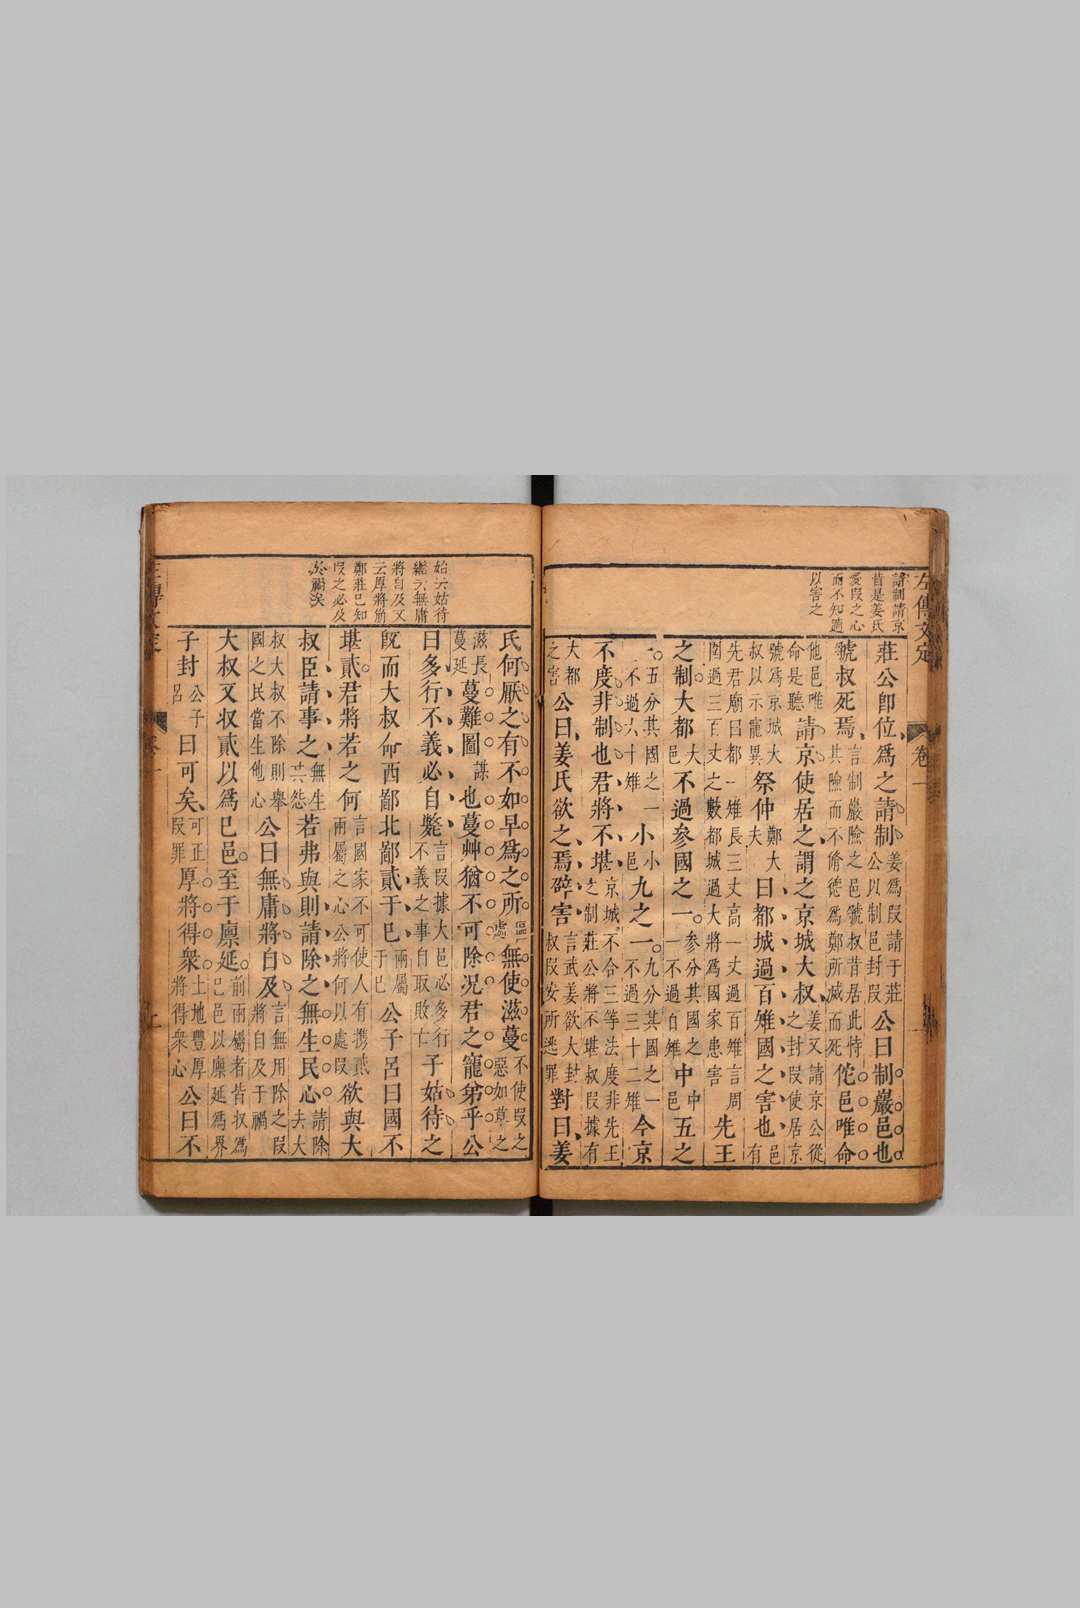 左傳文定
卷一
請制請京
昔是姜氏
愛段之心
而不知適
以害之
莊公即位爲之請制姜爲段請于莊公以制邑封段公曰制巖邑也
虢叔死焉言制巖險之邑虢叔昔居此恃其險而不脩德爲鄭所滅而死佗邑唯命
他邑唯命是聽請京使居之謂之京城大叔姜又請京公從之封段使居京
號爲京城大叔以示寵異祭仲鄭大夫曰都城過百雉國之害也邑有
先君廟曰都一雉長三丈高一丈過百雉言周圍過三百丈之數都城過大將爲國家患害先王
之制大都大邑不過參國之一參分其國之一不過百雉中中邑五之
一五分其國之一不過六十雉小小邑九之一九分其國之一不過三十二雉今京
不度非制也君將不堪京城不合三等法度非先王之制莊公將不堪叔段據有
大都之害公曰姜氏欲之焉辟害言武姜欲大封叔段安所逃罪對曰姜
始夫姑待
繼夫無庸
將自及又
云厚將崩
鄭莊已知
段之必及
於禍矣
氏何厭之有不如早爲之所無使滋蔓不使段之惡如草之
滋長蔓延蔓難圖謀也蔓艸猶不可除况君之寵弟乎公
曰多行不義必自斃言段據大邑必多行不義之事自取敗亡子姑待之
旣而大叔命西鄙北鄙貳于巳兩屬于巳公子呂曰國不
堪貳君將若之何言國家不可使人有携貳兩屬之心公將何以處段欲與大
叔臣請事之若弗與則請除之無生民心請除夫大
叔大叔不除則舉國之民當生他心公曰無庸將自及言無用除之段將自及于禍
大叔又収貳以爲巳邑至于廩延前兩屬者皆収爲巳邑以廩延爲界
子封公子呂曰可矣可正段罪厚將得衆土地豐厚將得衆心公曰不